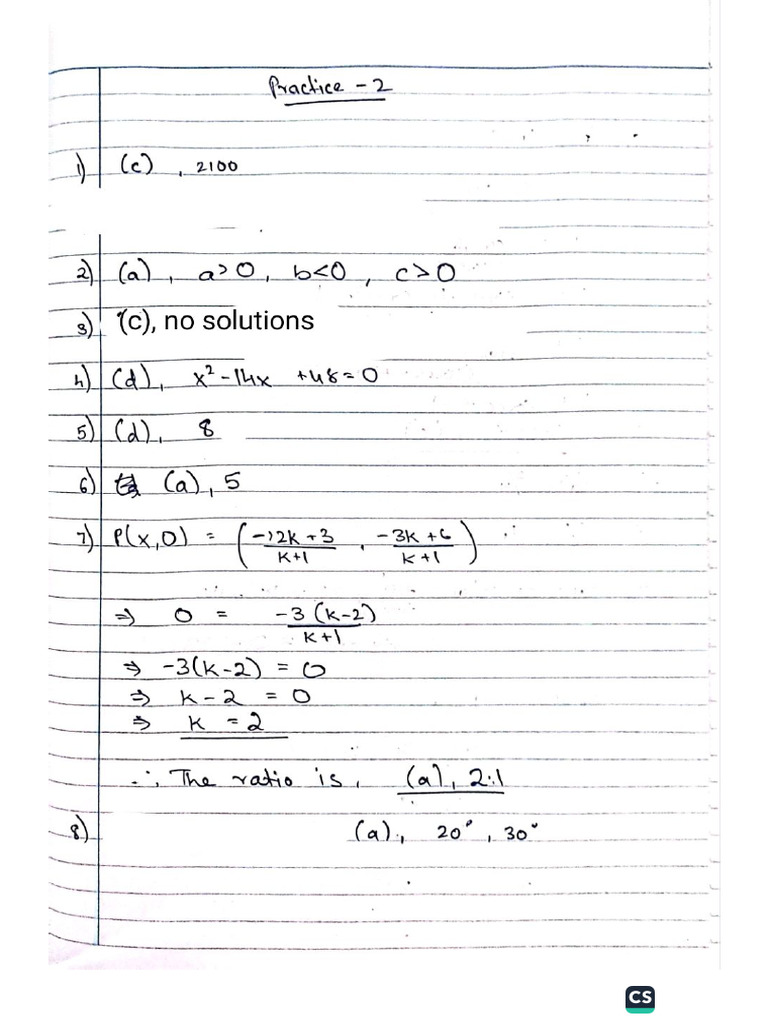 Practice - 2
1) (c) , 2100
2) (a) , a>0, b<0 , c>0
3) (c), no solutions
4) (d), x²-14x +48=0
5) (d), 8
6) (a), 5
7) P(x,0) = (-12k+3/k+1 , -3k+6/k+1)
⇒ 0 = -3(k-2)/k+1
⇒ -3(k-2) = 0
⇒ k-2 = 0
⇒ k = 2
∴ The ratio is, (a), 2:1
8) (a), 20°, 30°
CS